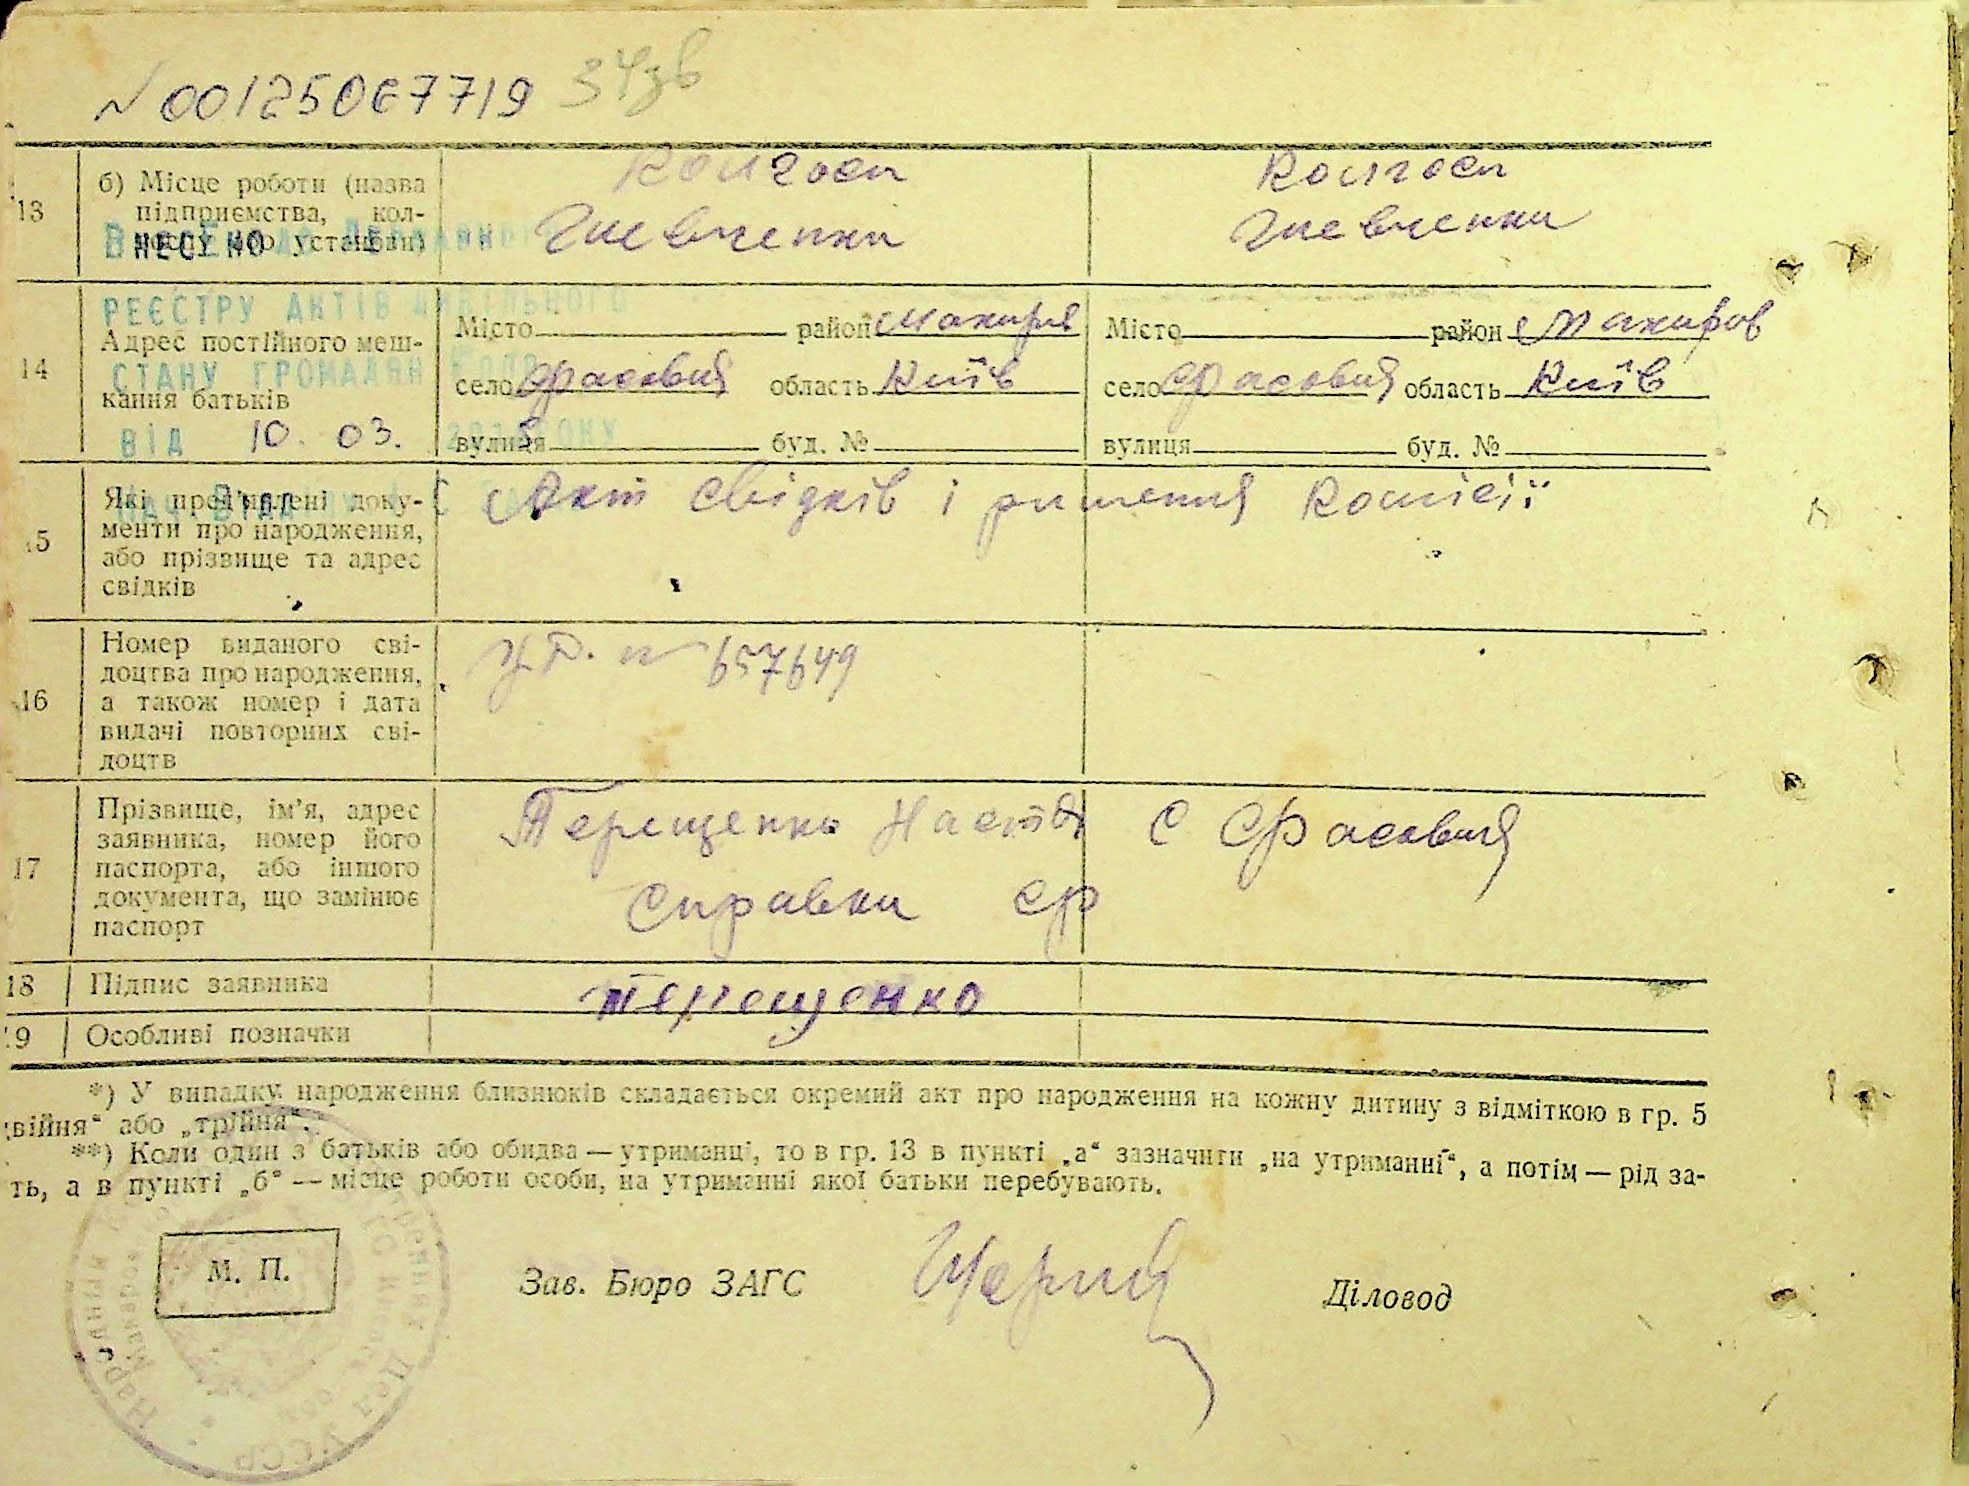 № 00125067719 34зв
13 б) Місце роботи (назва підприємства, колгоспу або установи)
Колгосп Колгосп
Шевченка Шевченка
ВНЕСЕНО ДО ДЕРЖАВНОГО
РЕЄСТРУ АКТІВ ЦИВІЛЬНОГО
СТАНУ ГРОМАДЯН
ВІД 10. 03. РОКУ
14 Адрес постійного мешкання батьків
Місто район Макирів Місто район Макиров
село Фасовия область Київ село Фасовия область Київ
вулиця буд. № вулиця буд. №
15 Які пред'явлені документи про народження, або прізвище та адрес свідків
Акт свідків і ришення Комісії
16 Номер виданого свідоцтва про народження, а також номер і дата видачі повторних свідоцтв
№ 657649
17 Прізвище, ім'я, адрес заявника, номер його паспорта, або іншого документа, що замінює паспорт
Терещенко Настя с Фасовия
справка
18 Підпис заявника
терещенко
19 Особливі позначки
*) У випадку народження близнюків складається окремий акт про народження на кожну дитину з відміткою в гр. 5
двійня“ або „трійня“.
**) Коли один з батьків або обидва — утриманці, то в гр. 13 в пункті „а“ зазначити „на утриманні“, а потім — рід за-
ть, а в пункті „б“ — місце роботи особи, на утриманні якої батьки перебувають.
М. П.
Зав. Бюро ЗАГС Діловод
УССР